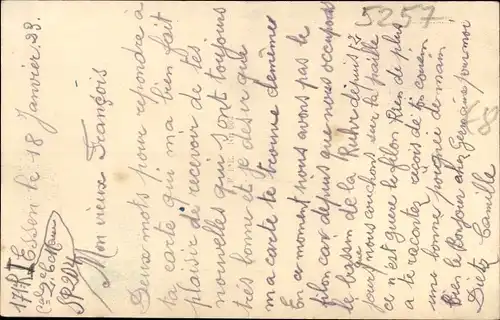 5257
Essen le 18 Janvier 23.
Mon vieux François
Deux mots pour repondre à
ta carte qui m'a bien fait
plaisir de recevoir de tes
nouvelles qui sont toujours
très bonne et je desir que
ma carte te trouve de même
En ce moment nous avons pas le
filon car depuis que nous occupons
le bassin de la Ruhr depuis
jours nous couchons sur la paille
ce n'est guere le filon Rien de plus
a te raconter reçois de ton cousin
une bonne poignée de main
bien le bonjour chez Germaine pour moi
Dietz Camille
171e R I
SP 204